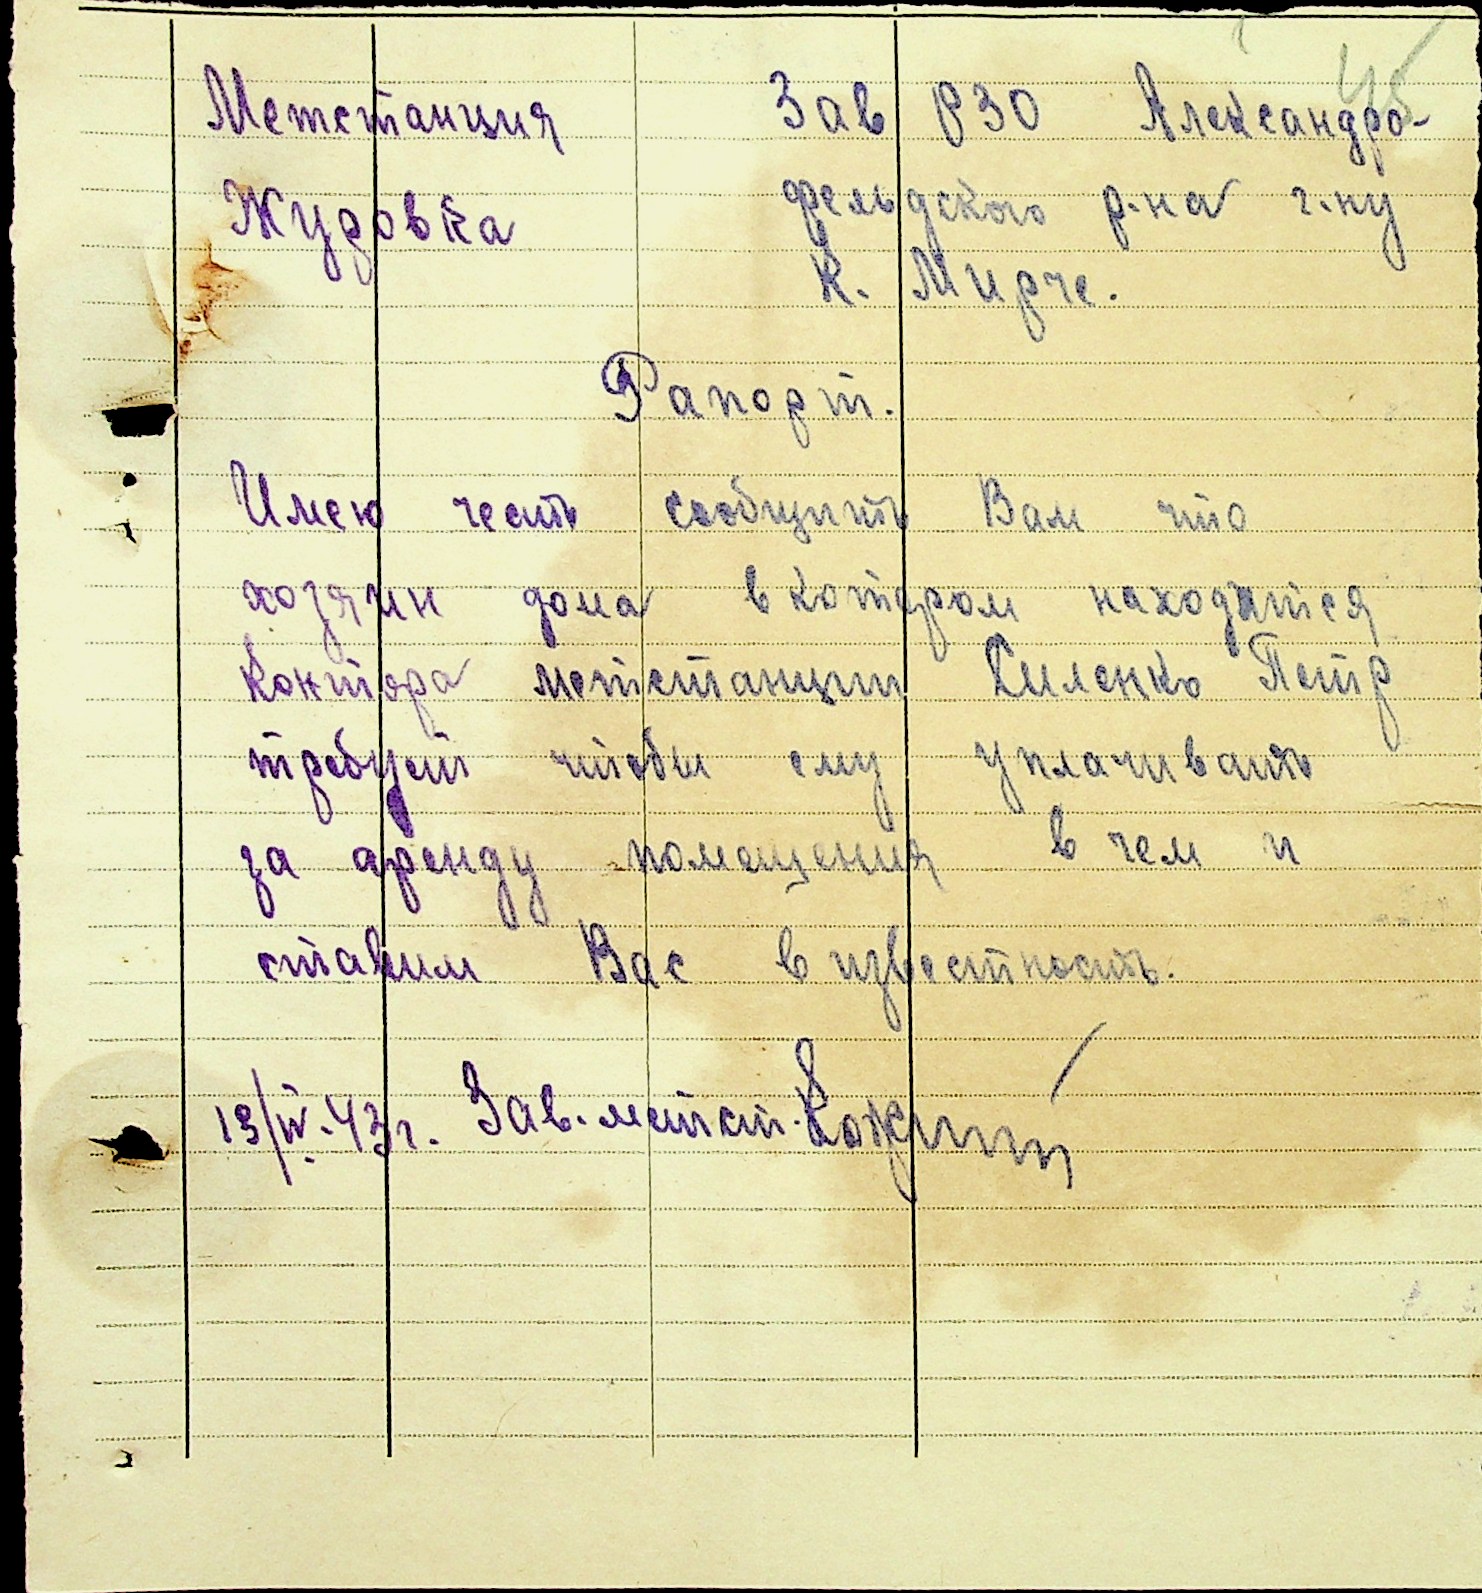 46
Метстанция Зав РЗО Александро-
Жудовка фельдского р-на г-ну
К. Мирче.
Рапорт.
Имею честь сообщить Вам что
хозяин дома в котором находится
контора метстанции Силенко Петр
требует чтобы ему уплачивать
за аренду помещения в чем и
ставим Вас в известность.
19/IV-43г. Зав. метст.